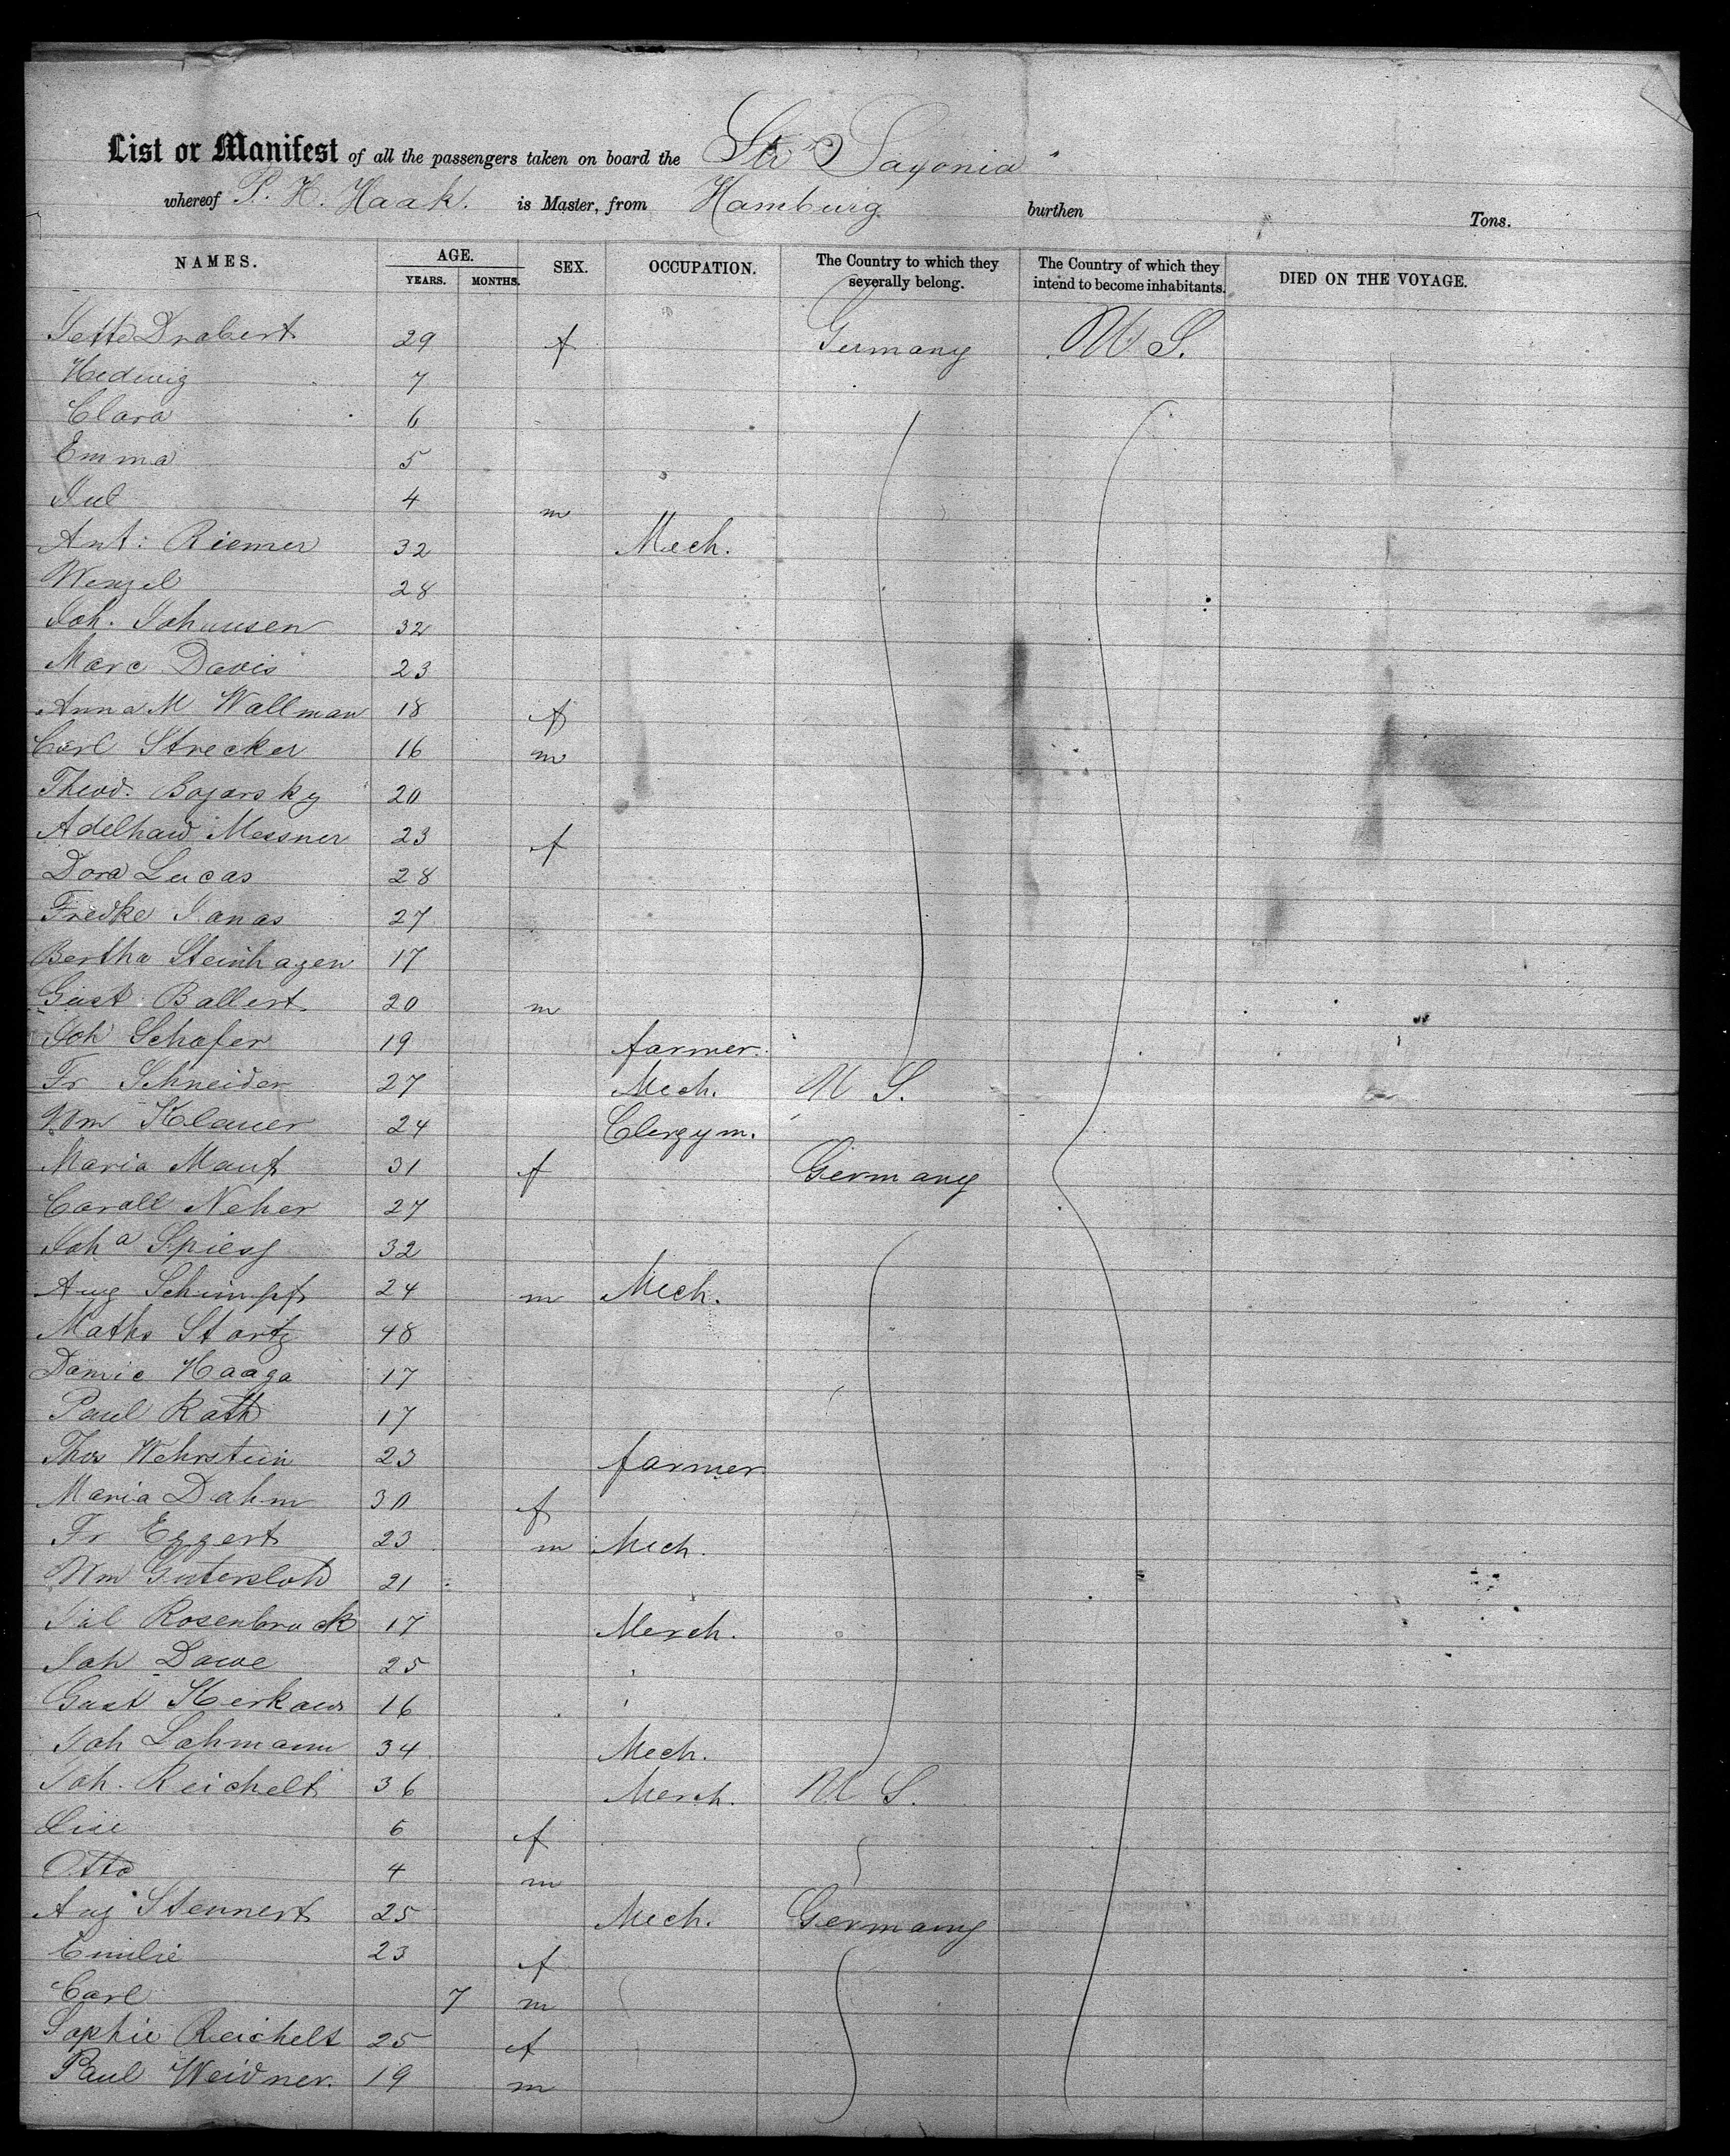 List or Manifest of all the passengers taken on board the Str Saxonia
whereof P. H. Haak. is Master, from Hamburg burthen Tons.
NAMES. AGE. YEARS. MONTHS. SEX. OCCUPATION. The Country to which they severally belong. The Country of which they intend to become inhabitants. DIED ON THE VOYAGE.
Jette Drabert 29 f Germany U S.
Hedwig 7
Clara 6
Emma 5
Jul 4 m
Ant: Riemer 32 Mech.
Wenzel 28
Joh. Johannsen 32
Marc Davis 23
Anna M Wallman 18 f
Carl Strecker 16 m
Theod. Bojarsky 20
Messner 23 f
Dora Lucas 28
Fredke Janas 27
Bertha Steinhagen 17
Gust Ballert 20 m
Joh Schafer 19 farmer.
Fr Schneider 27 Mech. U S.
Wm Klauer 24 Clergym.
Maria Mauf 31 f Germany
Neher 27
Joha Spiess 32
Aug Schimpf 24 m Mech.
Maths Startz 48
Haaga 17
Paul Rath 17
Thos Wehrstein 23 farmer
Maria Dahm 30 f
Fr Eggert 23 m Mech.
Wm Gutersloh 21
Jul Rosenbruck 17 Merch.
Joh Dawe 25
Gust Kerkau 16
Joh Lohmann 34 Mech.
Joh. Reichelt 36 Merch. U S.
Lise 6 f
Otto 4 m
Aug Stennert 25 Mech. Germany
Emilie 23 f
Carl 7 m
Sophie Reichelt 25 f
Paul Weidner. 19 m